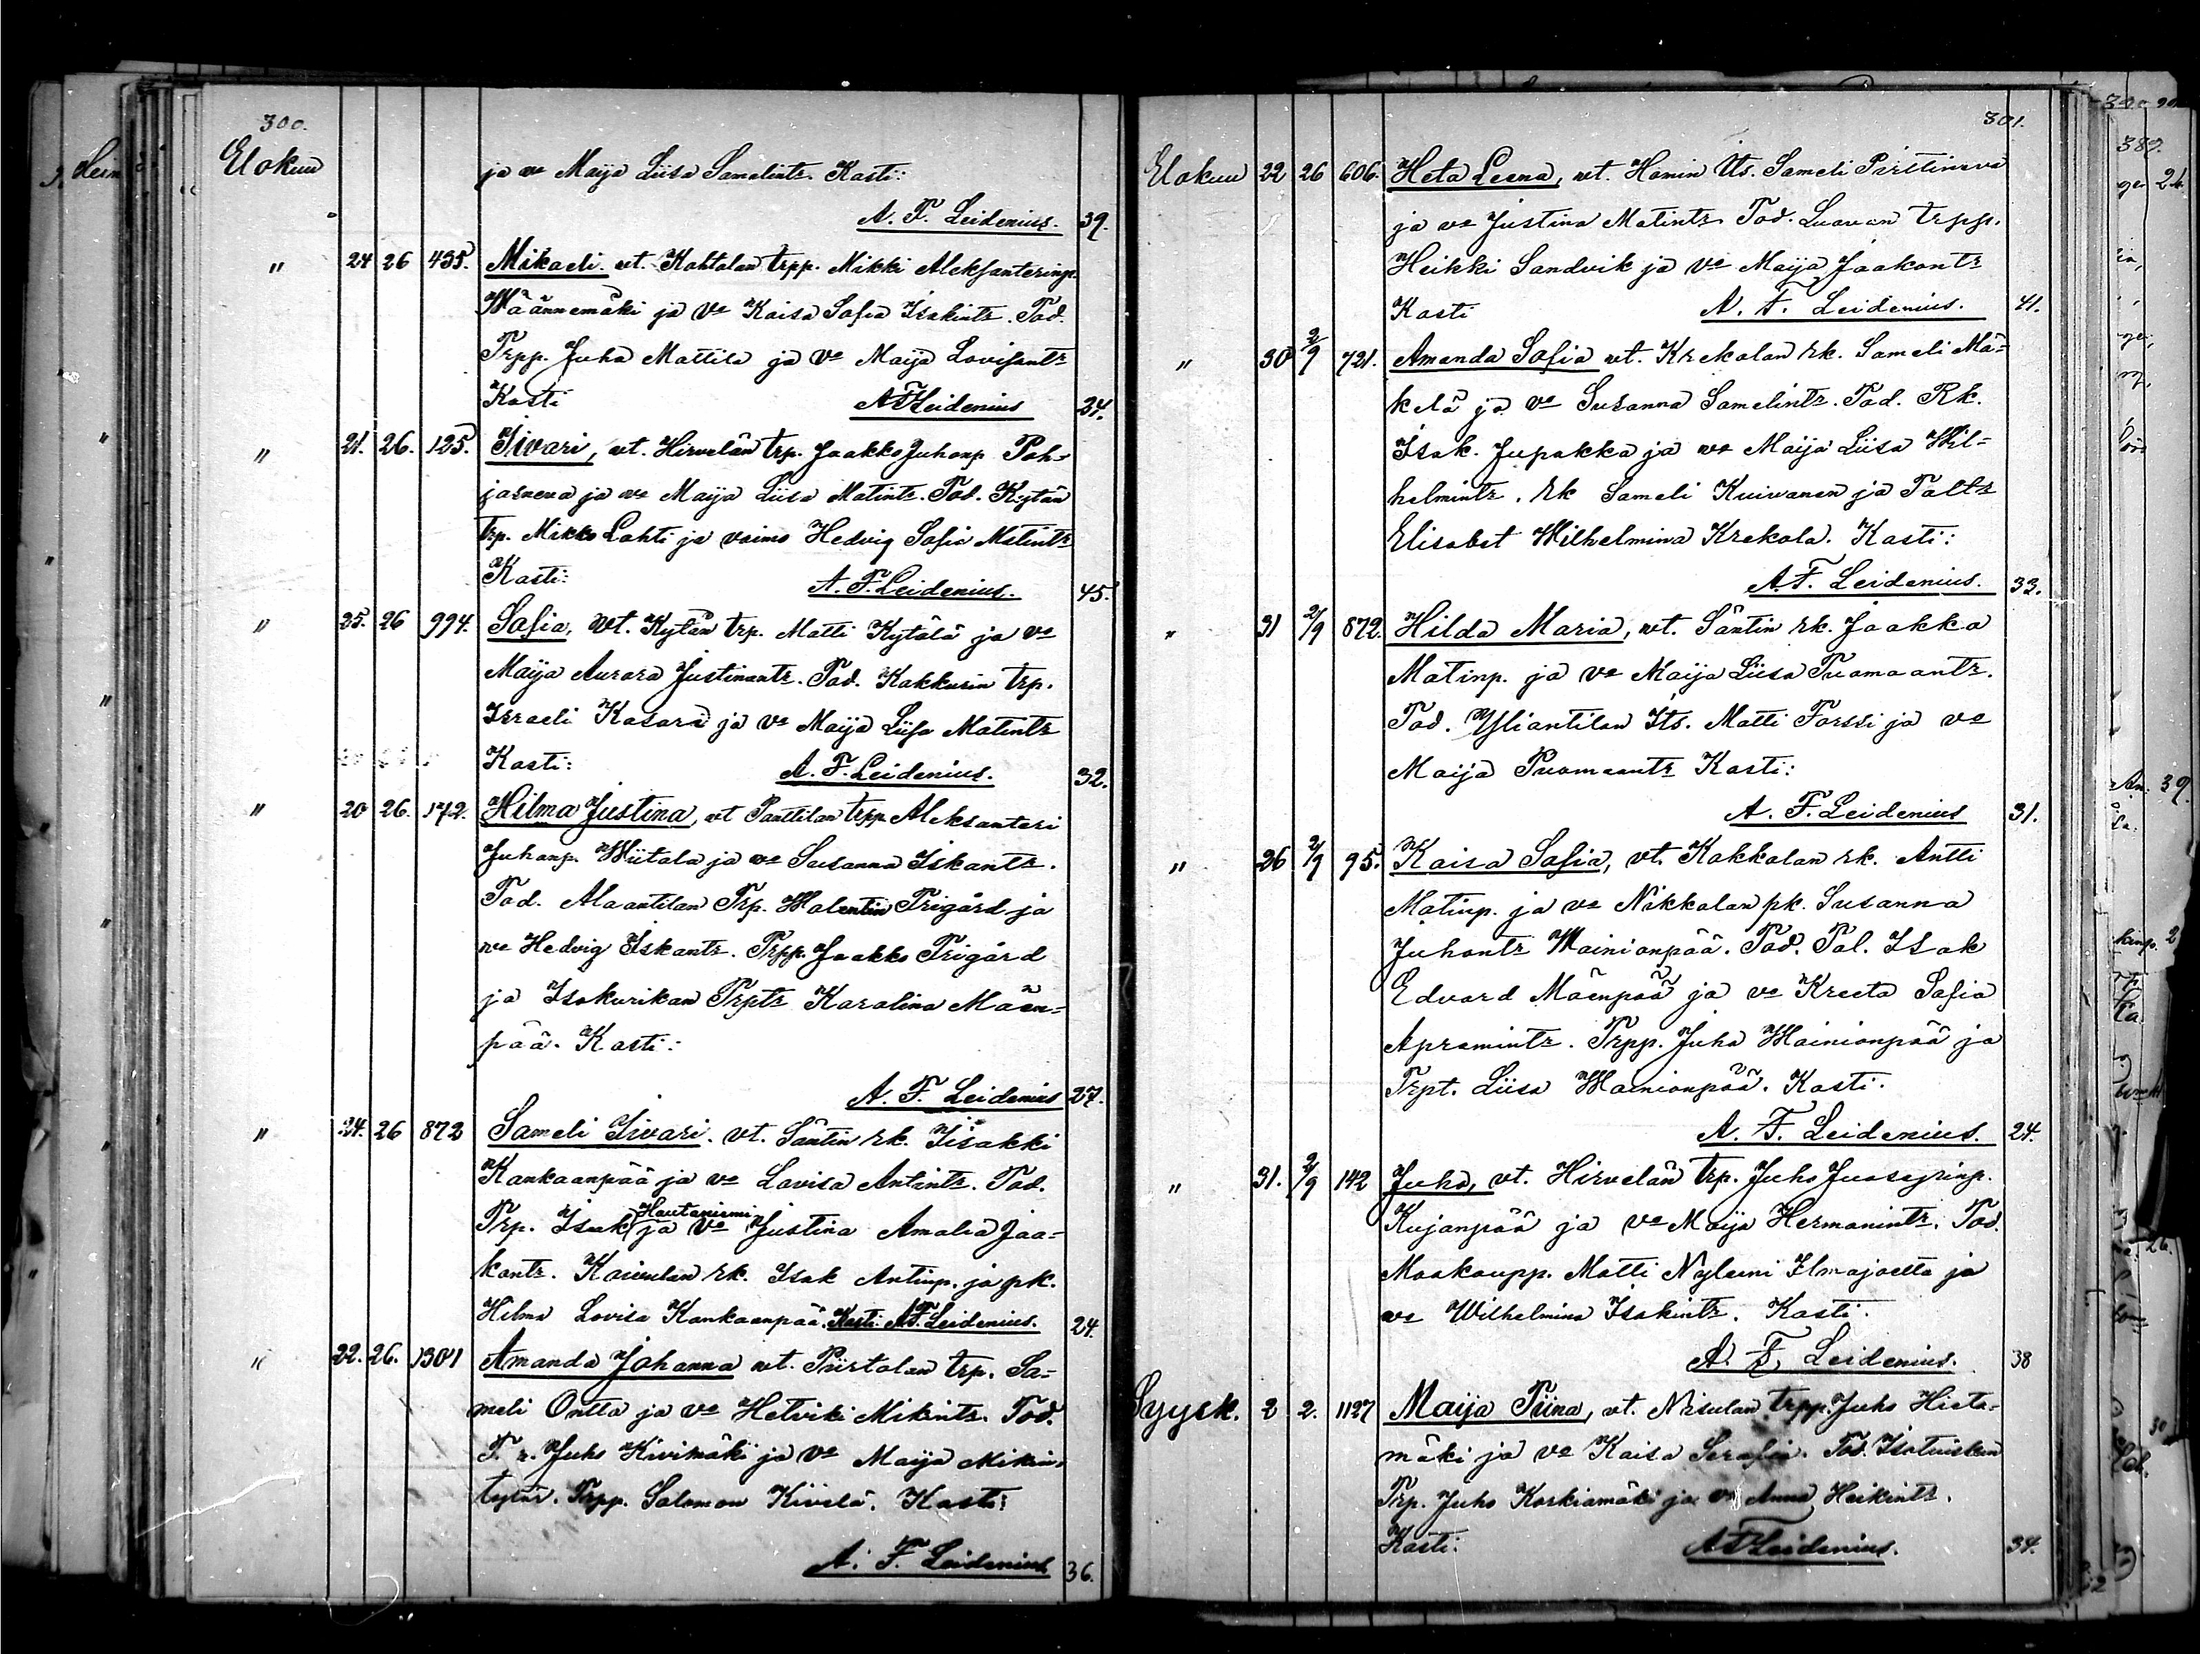 300.
Elokuu ja va Maija Liisa Samelintr. Kasti:
A. F. Leidenius. 39.
" 24 26 435. Mikaeli. vt. Kohtalan trpp. Mikki Aleksanterinp.
Wäännemäki ja Va Kaisa Sofia Isakintr. Tod.
Trpp. Juha Mattila ja Va Maija Lovisantr
Kasti AFLeidenius 24.
" 21. 26. 125. Iivari, vt. Hirvelän trp. Jaakko Juhonp Poh-
jasneva ja va Maija Liisa Matintr. Tod. Kytän
trp. Mikko Lahti ja vaimo Hedvig Sofia Matintr
Kasti: A. F. Leidenius. 45.
" 25. 26 994. Sofia, vt. Kytän trp. Matti Kytälä ja va
Maija Aurora Justinantr. Tod. Kakkurin trp.
Israeli Kasari ja Va Maija Liisa Matintr
Kasti: A. F. Leidenius. 32.
" 20 26. 172. Hilma Justina, vt Panttilan trpp Aleksanteri
Juhanp. Wiitala ja va Susanna Iskantr.
Tod. Alaantilan Trp. Walentin Trigård ja
va Hedvig Iskantr. Trpp. Jaakko Trigård
ja Isokurikan Trptr Karolina Mäen-
pää. Kasti:
A. F. Leidenius 27.
" 24. 26 872 Sameli Iivari. vt. Säntin rk. Iisakki
Kankaanpää ja va Lovisa Antintr. Tod.
Trp. Isak Hautaniemi ja Va Justina Amalia Jaa-
kontr. Koivulan rk. Isak Antinp. ja pk.
Hilma Lovisa Kankaanpää. Kasti: A.F. Leidenius. 24.
" 22. 26. 1301 Amanda Johanna vt. Piirtolan trp. Sa-
meli Ontto ja va Hetviki Mikintr. Tod.
T. r. Juho Kivimäki ja Va Maija Mikin-
tytär. Trpp. Salomon Kivelä. Kasti:
A. F. Leidenius 36.
301.
Elokuu 22 26 606. Heta Leena, vt. Honin Its. Sameli Pirttineva
ja va Justina Matintr. Tod. Luovan trpp.
Heikki Sandvik ja Va Maija Jaakontr
Kasti A. F. Leidenius. 41.
" 30 2/9 721. Amanda Sofia vt. Krekolan rk. Sameli Mä-
kelä ja va Susanna Samelintr. Tod. Rk.
Isak. Jupakka ja va Maija Liisa Wil-
helmintr. rk Sameli Kuivanen ja Taltr
Elisabet Wilhelmina Krekola. Kasti:
A. F. Leidenius. 33.
" 31 2/9 872. Hilda Maria, vt. Säntin rk. Jaakko
Matinp. ja va Maija Liisa Tuomaantr.
Tod. Yliantilan Its. Matti Forssi ja va
Maija Tuomaantr Kasti:
A. F. Leidenius 31.
" 26 2/9 95. Kaisa Sofia, vt. Kokkolan rk. Antti
Matinp. ja va Nikkolan pk. Susanna
Juhontr Wainionpää. Tod. Tal. Isak
Edvard Mäenpää ja va Kreeta Sofia
Apramintr. Trpp. Juha Wainionpää ja
Trpt. Liisa Wainionpää. Kasti.
A. F. Leidenius. 24.
" 31. 2/9 142 Juho, vt. Hirvelän trp. Juho Juosepinp.
Kujanpää ja va Maija Hermanintr. Tod.
Maakaupp. Matti Nyleeni Ilmajoelta ja
va Wilhelmina Isakintr. Kasti.
A. F. Leidenius. 38
Syysk. 2 2. 1127 Maija Tiina, vt. Nisulan trpp. Juho Hieta-
mäki ja va Kaisa Serafia. Tod. Isotuiskun
Trp. Juho Koskiamäki ja va Anna Heikintr.
Kasti: AFLeidenius. 34.